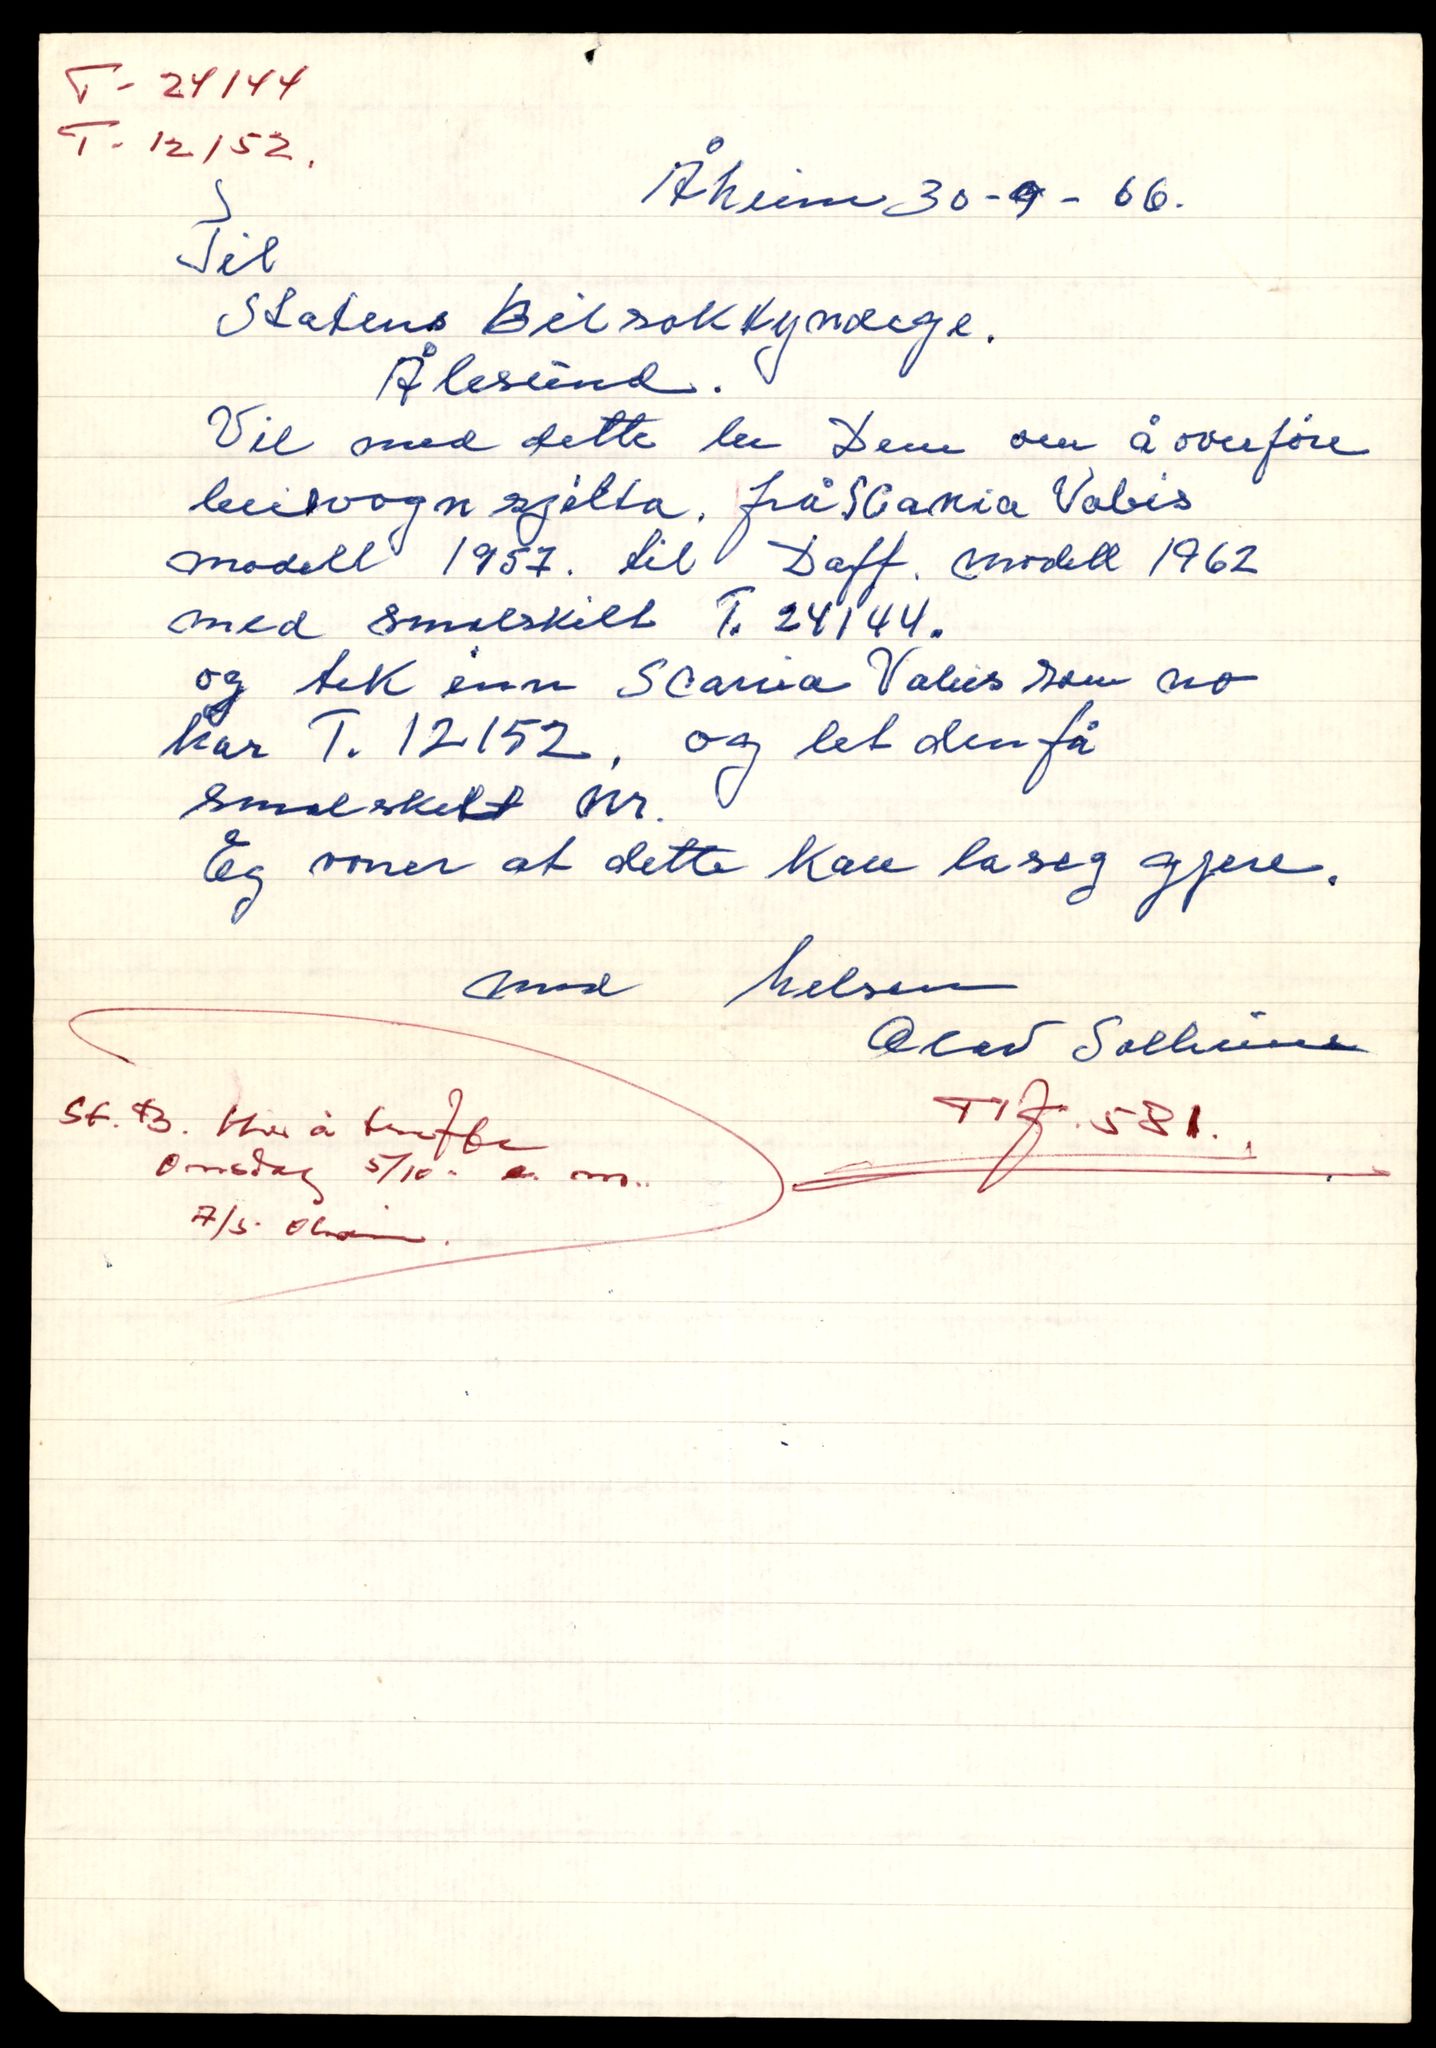 T- 24144
T- 12152.
Åheim 30-9-66.
Til
Statens Bilsakkyndege.
Ålesund.
Vil med dette be Dem om å overføre
leievognsjilta. frå Scania Vabis
modell 1957. til Daff. modell 1962
med smalskilt T. 24144.
og tek inn Scania Vabis som no
har T. 12152, og let den få
smalskilt nr.
Eg voner at dette kan la seg gjere.
med helsen
Olav Solheim
Tlf. 581.
St. B. her å treffe
Onsdag 5/10- e. m.